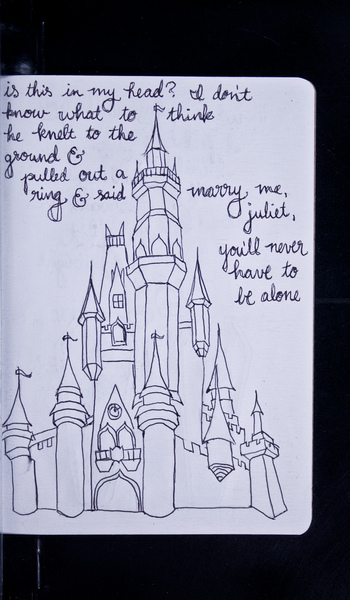 is this in my head? I don't
know what to think
he knelt to the
ground &
pulled out a
ring & said marry me,
juliet,
you'll never
have to
be alone